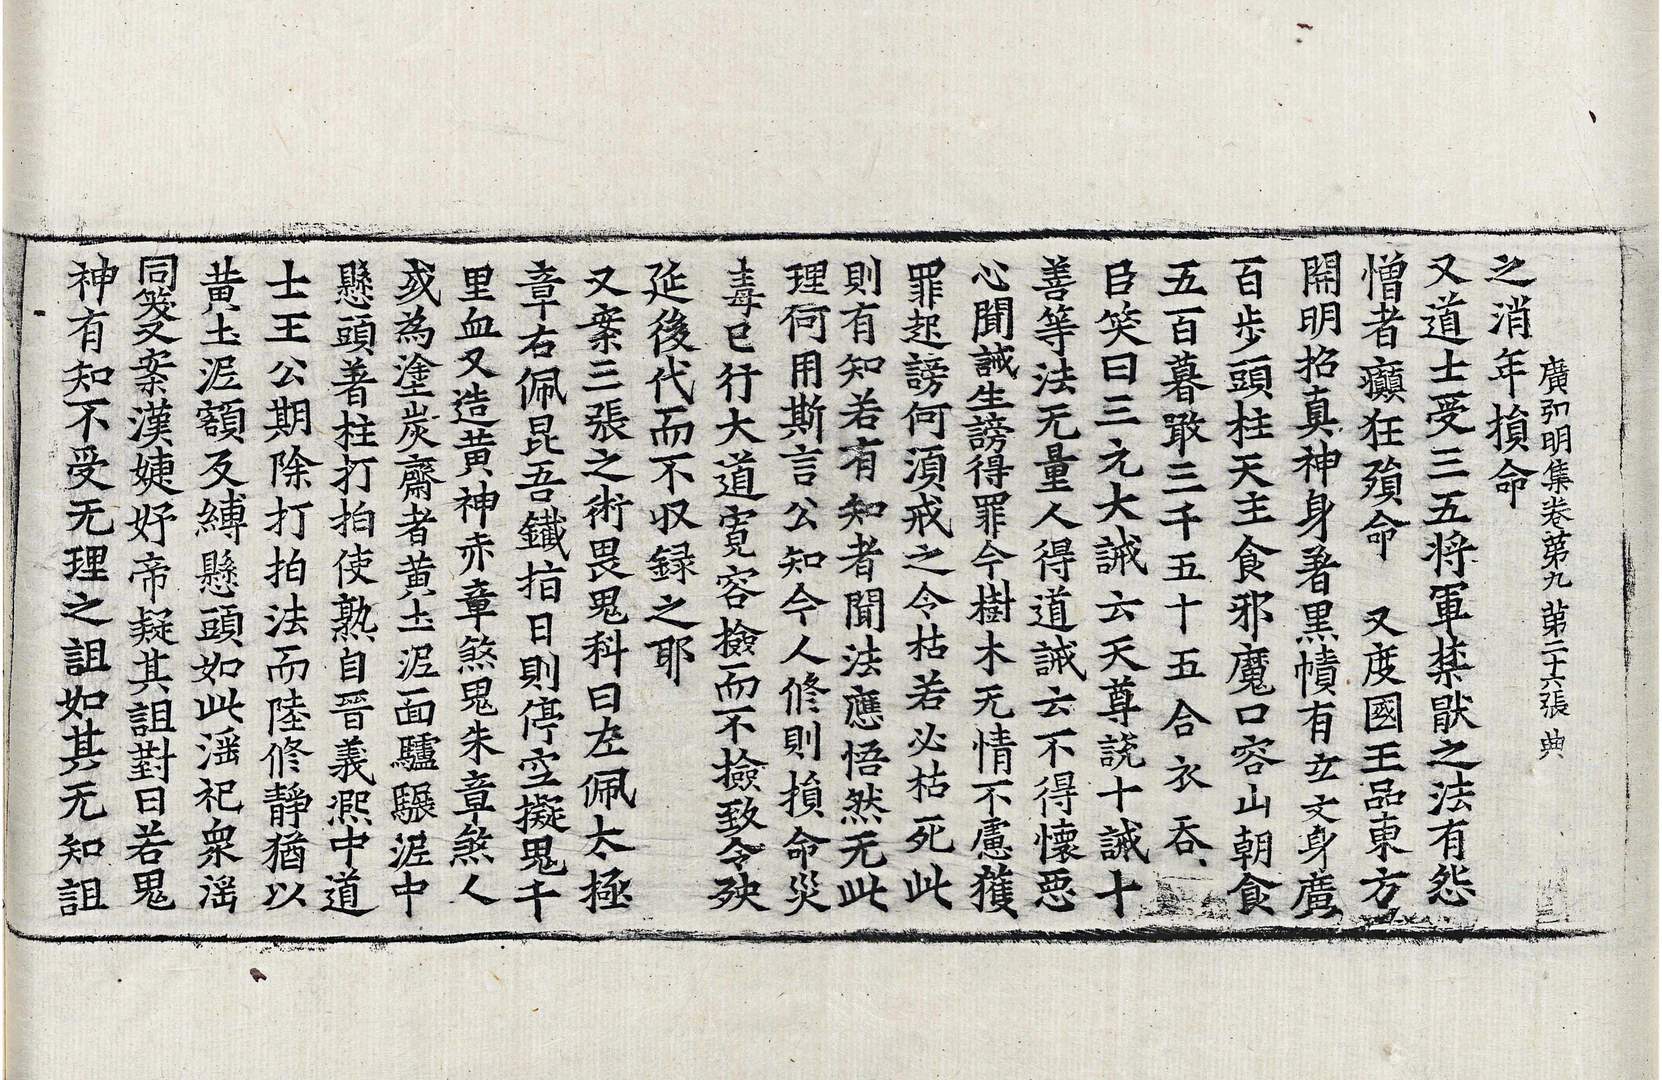 廣弘明集卷第九 第二十六張 典
之消年損命
又道士受三五将軍禁猒之法有怨
憎者癲狂殞命 又度國王品東方
開明招真神身著黑幘有立文身廣
百步頭柱天主食邪魔口容山朝食
五百暮噉三千五十五合衣吞
臣笑曰三元大誡云天尊說十誡十
善等法无量人得道誡云不得懷惡
心聞誡生謗得罪今樹木无情不慮獲
罪起謗何須戒之令枯若必枯死此
則有知若有知者聞法應悟然无此
理何用斯言公知今人修則損命災
毒已行大道寬容撿而不撿致令殃
延後代而不収録之耶
又案三張之術畏鬼科曰左佩太極
章右佩昆吾鐵拍日則停空擬鬼千
里血又造黄神赤章煞鬼朱章煞人
或為塗炭齋者黄土泥面驢騾泥中
懸頭著柱打拍使熟自晉義熙中道
士王公期除打拍法而陸修靜猶以
黄土泥額反縛懸頭如此淫祀衆淫
同笑又案漢婕妤帝疑其詛對曰若鬼
神有知不受无理之詛如其无知詛